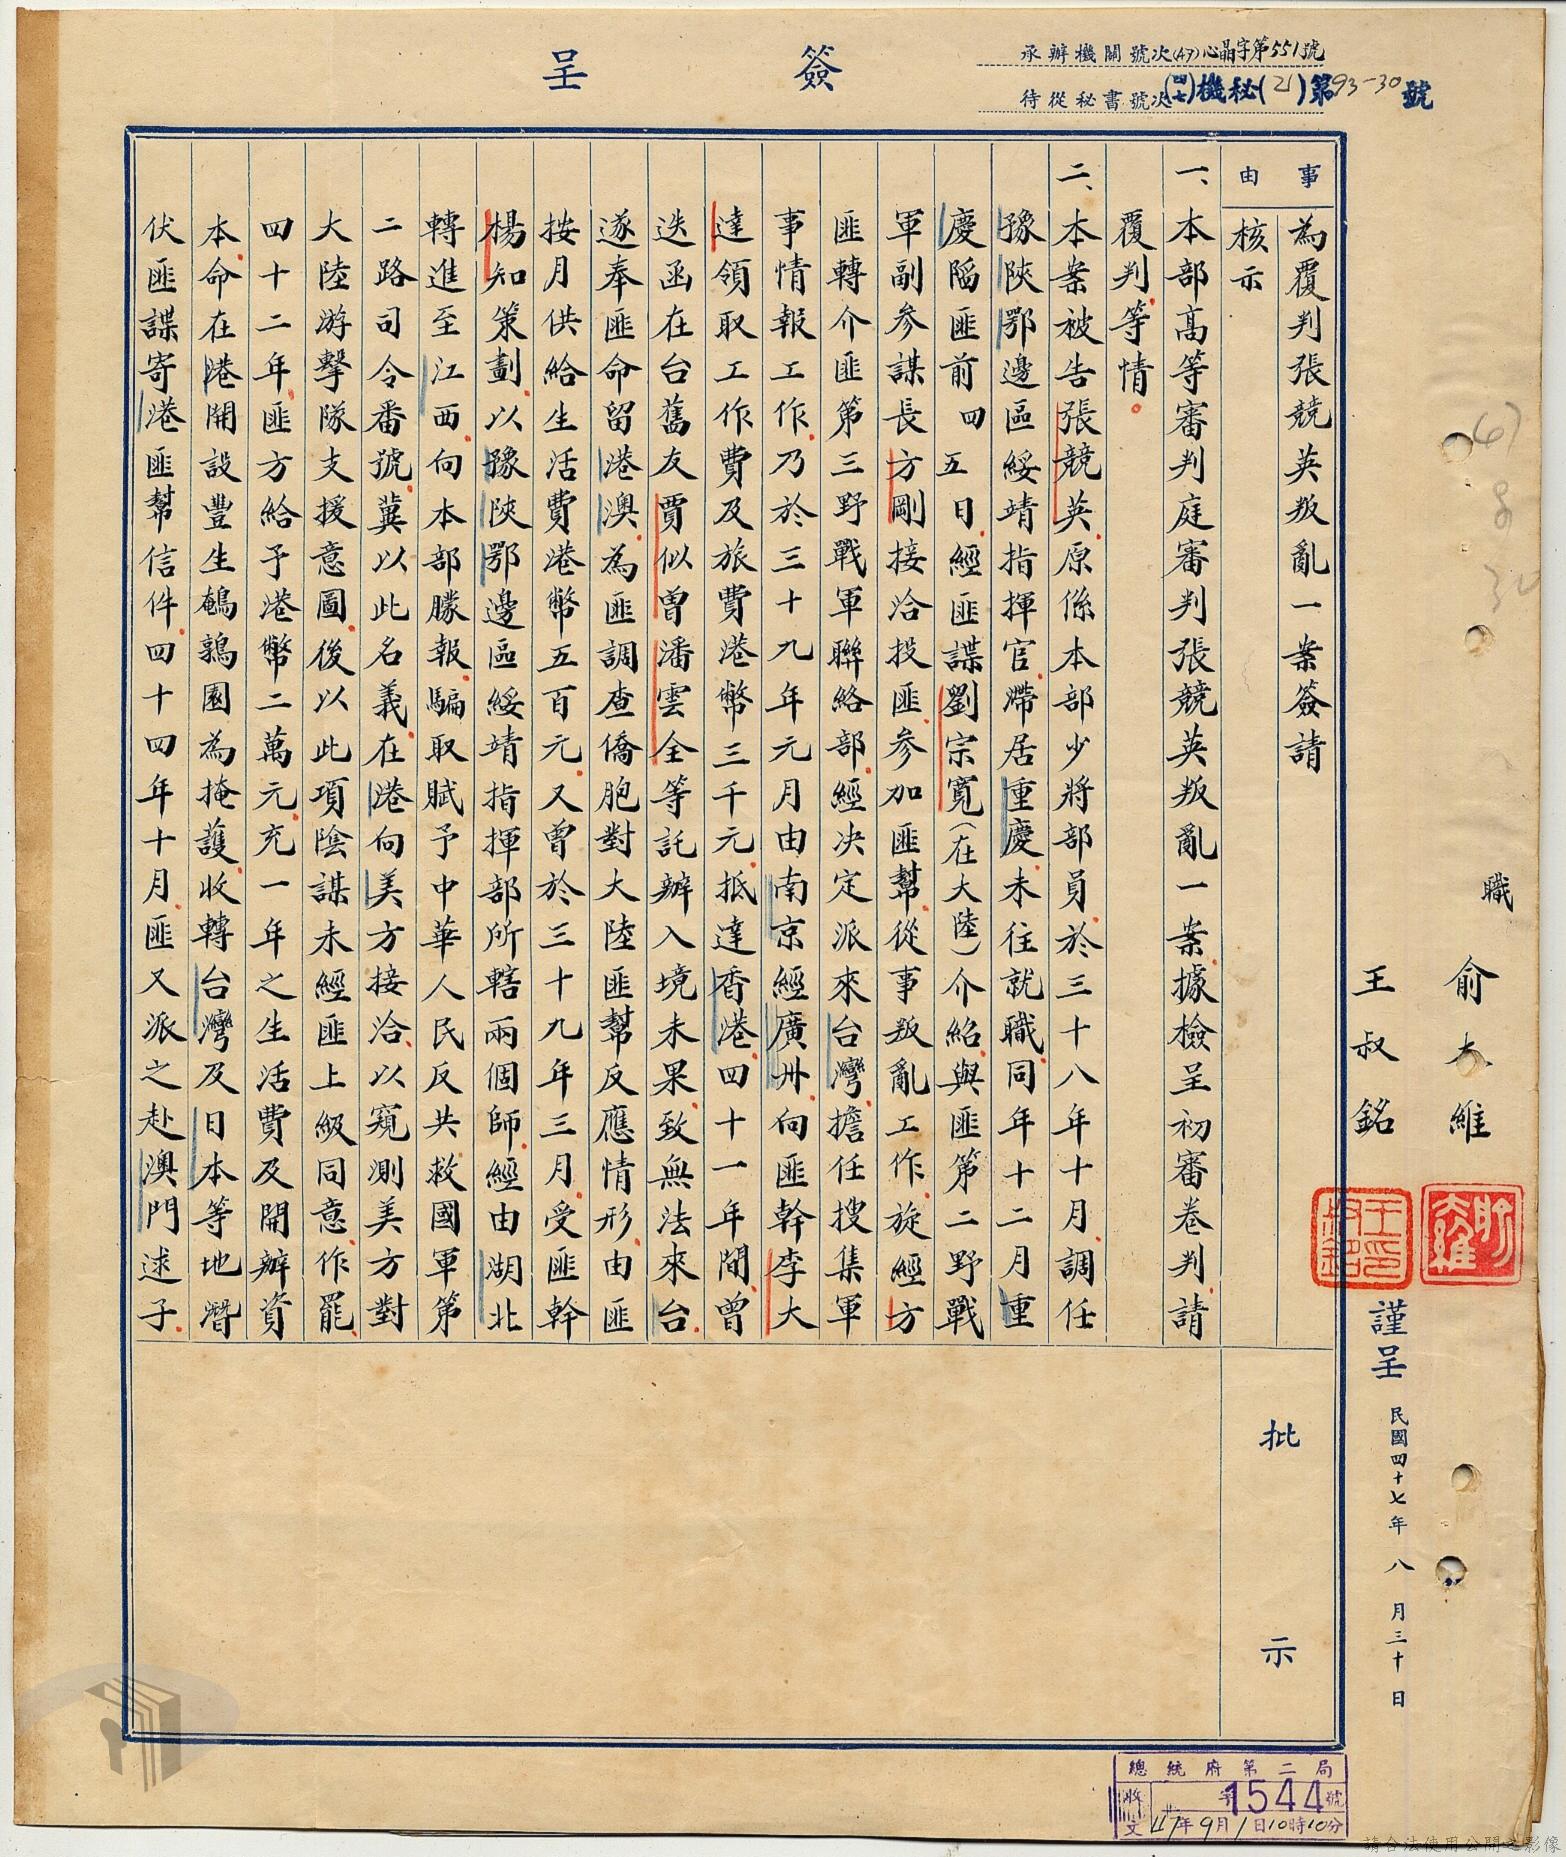 簽呈
承辦機關號次(47)心晶字第551號
侍從秘書號次(四七)機秘(21)第93-30號
事由
為覆判張競英叛亂一案簽請
核示
一、本部高等審判庭審判張競英叛亂一案據檢呈初審卷判請
覆判等情。
二、本案被告張競英原係本部少將部員於三十八年十月調任
豫陝鄂邊區綏靖指揮官滯居重慶未往就職同年十二月重
慶陷匪前四五日經匪諜劉宗寬(在大陸)介紹與匪第二野戰
軍副參謀長方剛接洽投匪參加匪幫從事叛亂工作旋經方
匪轉介匪第三野戰軍聯絡部經決定派來台灣擔任搜集軍
事情報工作乃於三十九年元月由南京經廣州向匪幹李大
達領取工作費及旅費港幣三千元抵達香港四十一年間曾
迭函在台舊友賈似曾潘雲全等託辦入境未果致無法來台
遂奉匪命留港澳為匪調查僑胞對大陸匪幫反應情形由匪
按月供給生活費港幣五百元又曾於三十九年三月受匪幹
楊知策劃以豫陝鄂邊區綏靖指揮部所轄兩個師經由湖北
轉進至江西向本部朦報騙取賦予中華人民反共救國軍第
二路司令番號冀以此名義在港向美方接洽以窺測美方對
大陸游擊隊支援意圖後以此項陰謀未經匪上級同意作罷
四十二年匪方給予港幣二萬元充一年之生活費及開辦資
本命在港開設豐生鵪鶉園為掩護收轉台灣及日本等地潛
伏匪諜寄港匪幫信件四十四年十月匪又派之赴澳門逑子
批示
職 俞大維
王叔銘
謹呈
民國四十七年八月三十日
總統府第二局
收文 字1544號
47年9月1日10時10分
請合法使用公開之影像